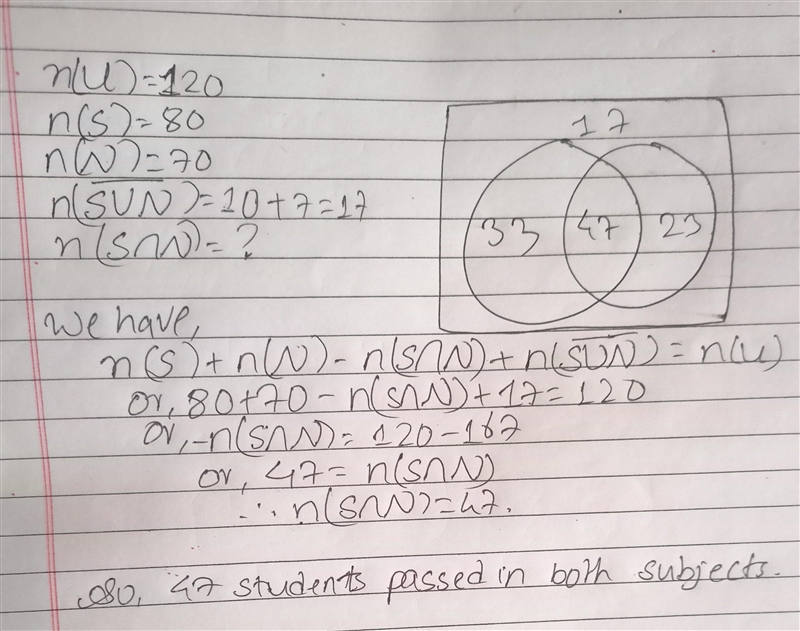 n(U)=120
n(S)=80
n(N)=70
n(S̅U̅N̅)=10+7=17
n(S∩N)=?
17
33 47 23
We have,
n(S)+n(N)-n(S∩N)+n(S̅U̅N̅)=n(U)
or, 80+70-n(S∩N)+17=120
or, -n(S∩N)=120-167
or, 47=n(S∩N)
∴ n(S∩N)=47.
So, 47 students passed in both subjects.